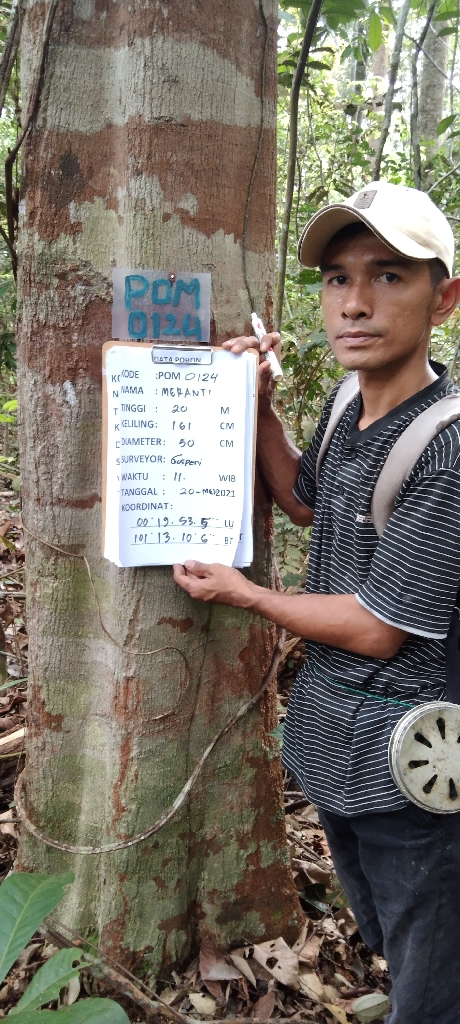 POM
0124
DATA POHON
KODE : POM 0124
NAMA : MERANTI
TINGGI : 20 M
KELILING : 161 CM
DIAMETER : 50 CM
SURVEYOR:
WAKTU : 11. WIB
TANGGAL : 20-MEI2021
KOORDINAT :
00° 19. 53. 5" LU
101° 13. 10 6" BT